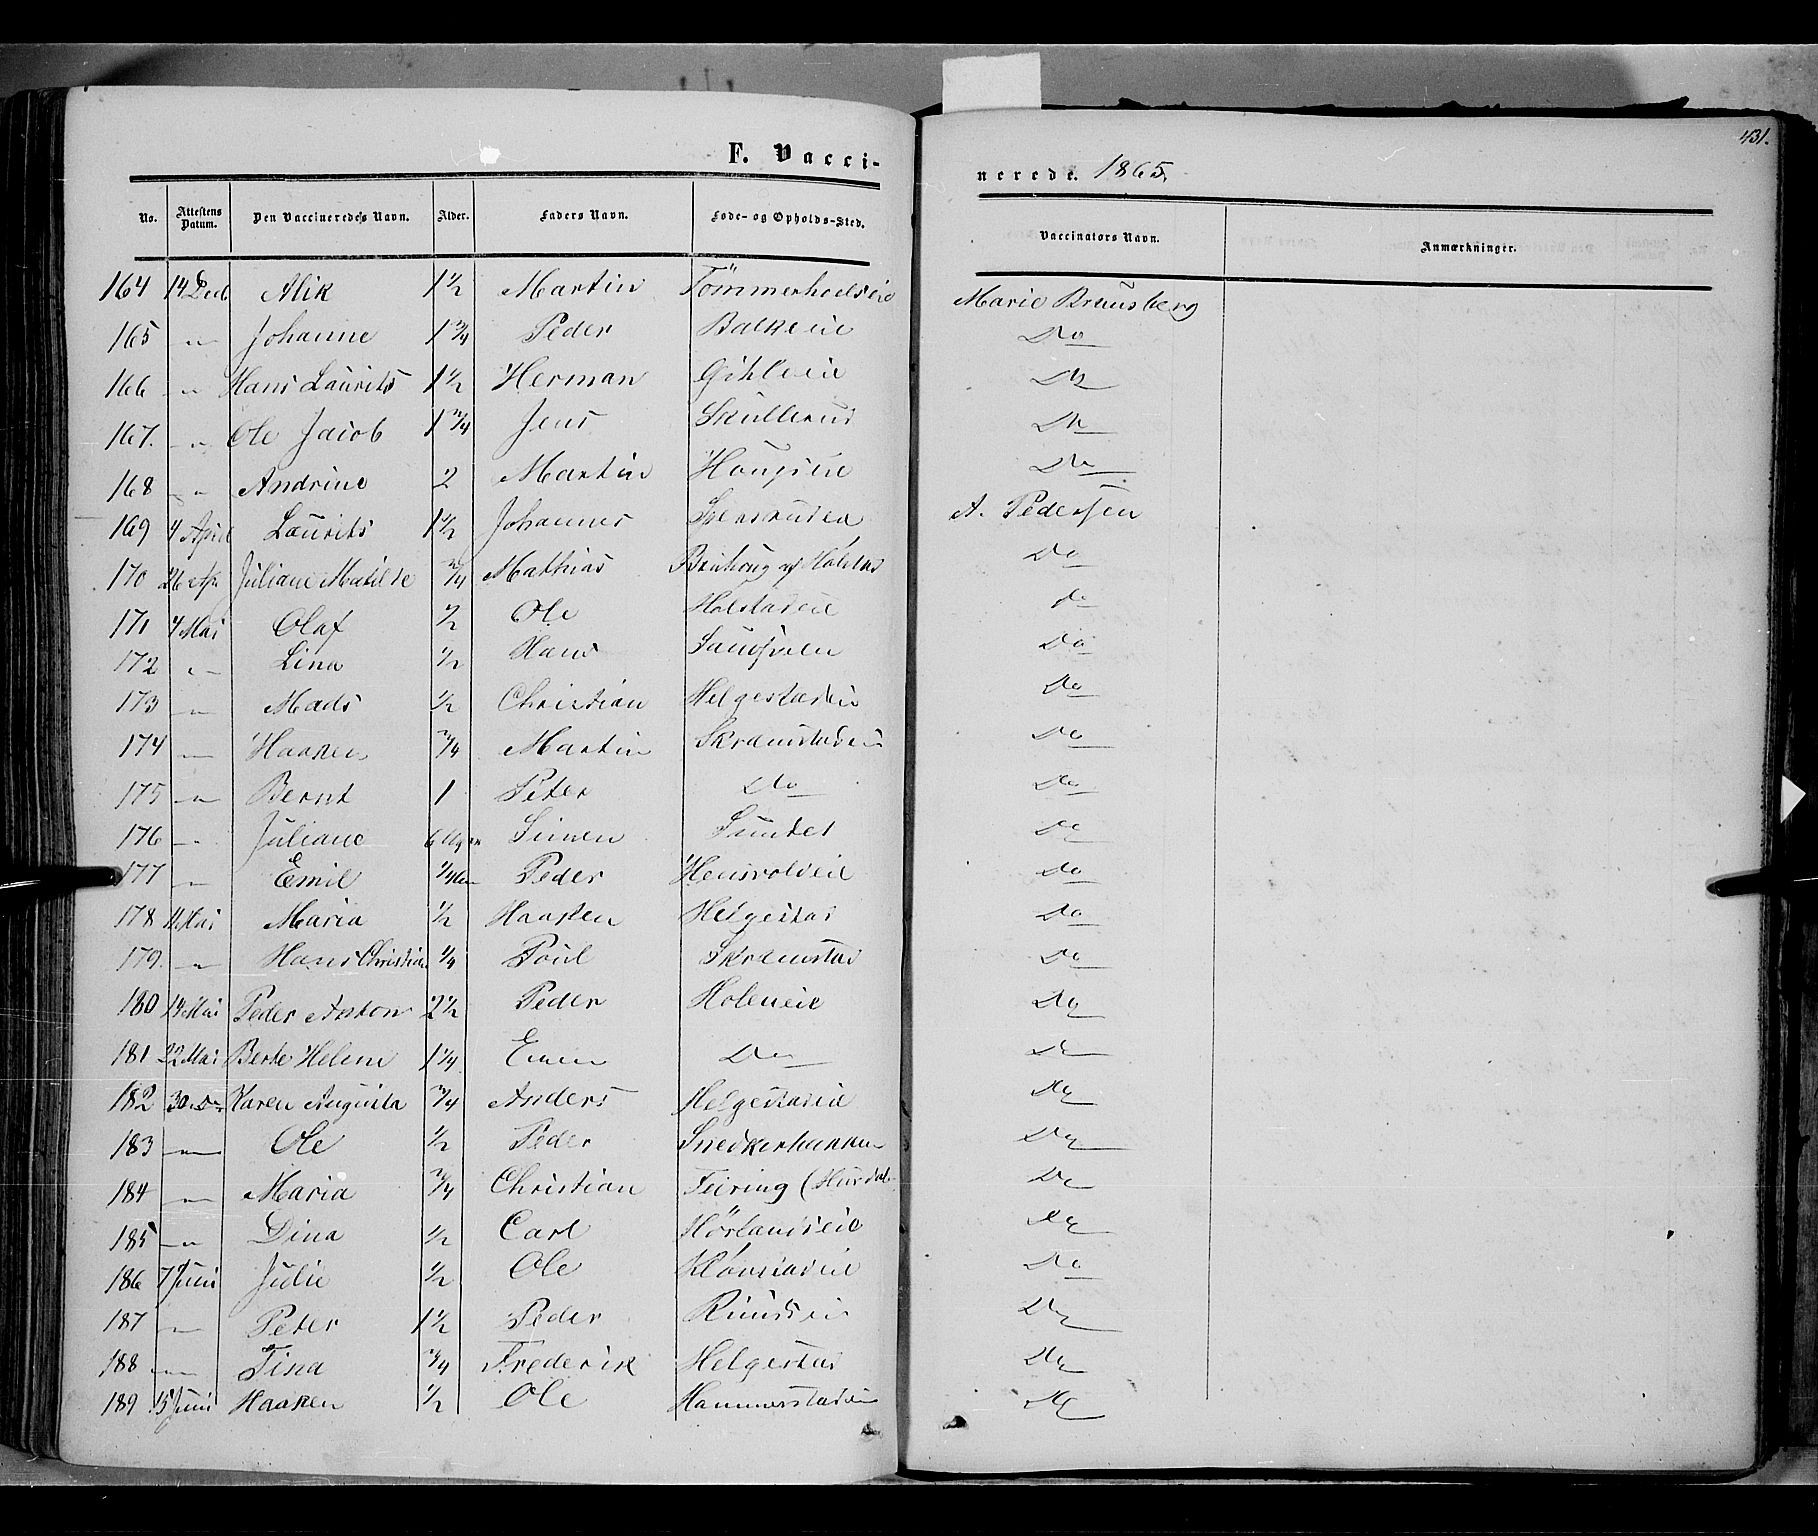 431.
F. Vacci- nerede. 1865.
No. Attestens Datum. Den Vaccineredes Navn. Alder. Faders Navn. Føde- og Opholds-Sted. Vaccinators Navn. Anmærkninger.
164 14 Alik 1 1/2 Martin Marie Bruusberg
165 " Johanne 1 3/4 Peder Balkeeie Do
166 " Hans Laurits 1 1/2 Herman Gihleeie Do
167. " Ole Jacob 1 3/4 Jens Skullerud Do
168 " Andrine 2 Martin Do
169 4 April Laurits 1 1/2 Johannes A. Pederssen
170 26 Ap. Juliane Matilde 3/4 Mathias Do
171 4 Mai Olaf 1/2 Ole Holstadeie do
172 " Lina 1/2 Hans Do
173 " Mads 1/2 Christian Helgestadeie Do
174 " Haaken 3/4 Martin Skramstadeie Do
175 " Bernt 1 Peter Do Do
176 " Juliane 6 Simen Sundet Do
177 " Emil 1/4 Peder Do
178 11 Mai Maria 1/2 Haaken Helgestad Do
179. " Hans Christian 1/4 Poul Skramstad Do
180 14 Mai Peder Anton 2 1/2 Peder Holeneie Do
181 22 Mai Berte Helene 1 1/4 Even Do Do
182 30 Do Karen Augusta 3/4 Anders Helgestadeie Do
183 " Ole 1/2 Peder Snedkerhakken Do
184 " Maria 3/4 Christian Feiring (Hurdal Do
185 " Dina 1/2 Carl Hörlandseie Do
186 7 Juni Julie 1/2 Ole Kløvstadeie Do
187 " Peter 1 1/2 Peder Ruudseie Do
188 " Tina 3/4 Frederik Helgestad Do
189 15 Juni Haaken 1/2 Ole Hammerstadeie Do